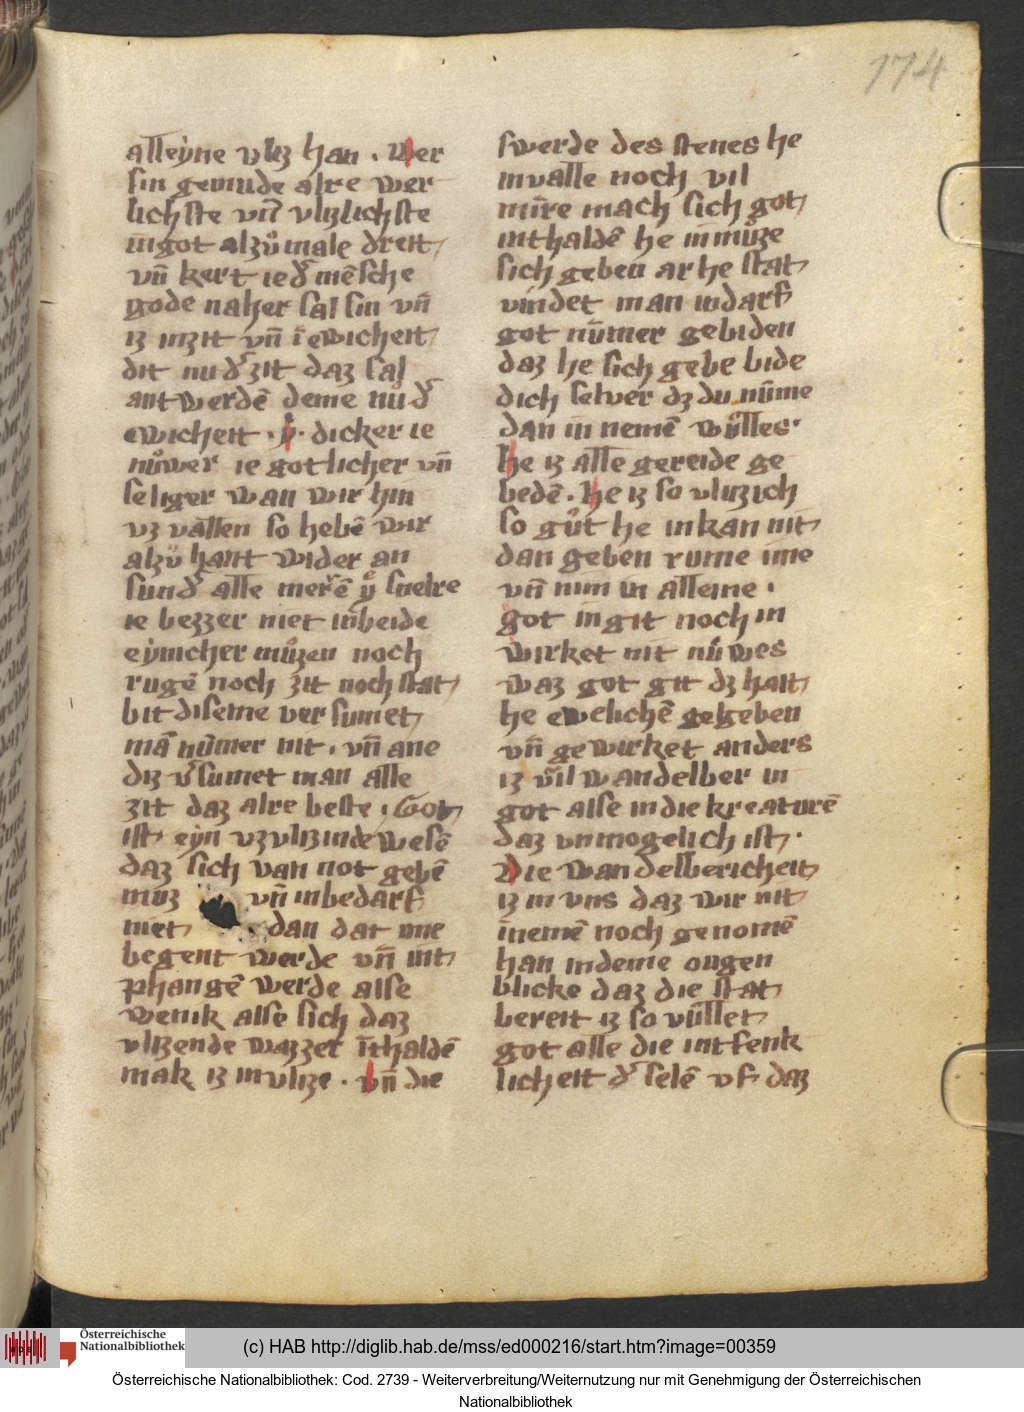 174
alleyne vliz han . Wer
sin gemude alre wer
lichste vn̄ vlizlichste
in got alzů male dreit
vn̄ kert ied͛ mēsche
gode naher sal sin vn̄
iz inzit vn̄ ī ewicheit
dit nu d͛ zit daz sal
antwerdē deme nů d͛
ewicheit . y̆ . dicker ie
nůwer ie gotlicher vn̄
seliger wan wir hin
vz vallen so hebē wir
alzů hant wider an
sund͛ alle merrē y̆ snelre
ie bezzer niet inbeide
eynicher můzen noch
rugē noch zit noch stat
bit diseme versumet
mā nūmer nit . vn̄ ane
diz v͛sumet man alle
zit daz alre beste . Got
ist eyn vzvlizinde wesē
daz sich van not gebē
muz vn̄ inbedarf
niet dan dat ime
begent werde vn̄ int
phangē werde alse
wenik alse sich daz
vlizende wazzer īthaldē
mak iz invlize . vn̄ die
swerde des stenes he
invalle noch vil
mīre mach sich got
inthaldē he in můze
sich geben ar he stat
vindet man indarf
got nūmer gebiden
daz he sich gebe bide
dich selver dz du nūme
dan in nemē wůlles .
he iz alle gereide ge
bedē . he iz so vluzich
so gůt he inkan nit
dan geben rume ime
vn̄ nim in alleine .
got ingit noch in
wirket nit nůwes
waz got git dz hait
he ewelichē gegeben
vn̄ gewirket anders
iz v̄il wandelber in
got alse in die kreaturē
daz vnmogelich ist .
Die wandelbericheit
iz in vns daz wir nit
inemē noch genomē
han indeme ougen
blicke daz die stat
bereit iz so vůllet
got alle die intfenk
licheit d͛ selē vf daz
Österreichische
Nationalbibliothek
(c) HAB http://diglib.hab.de/mss/ed000216/start.htm?image=00359
Österreichische Nationalbibliothek: Cod. 2739 - Weiterverbreitung/Weiternutzung nur mit Genehmigung der Österreichischen
Nationalbibliothek